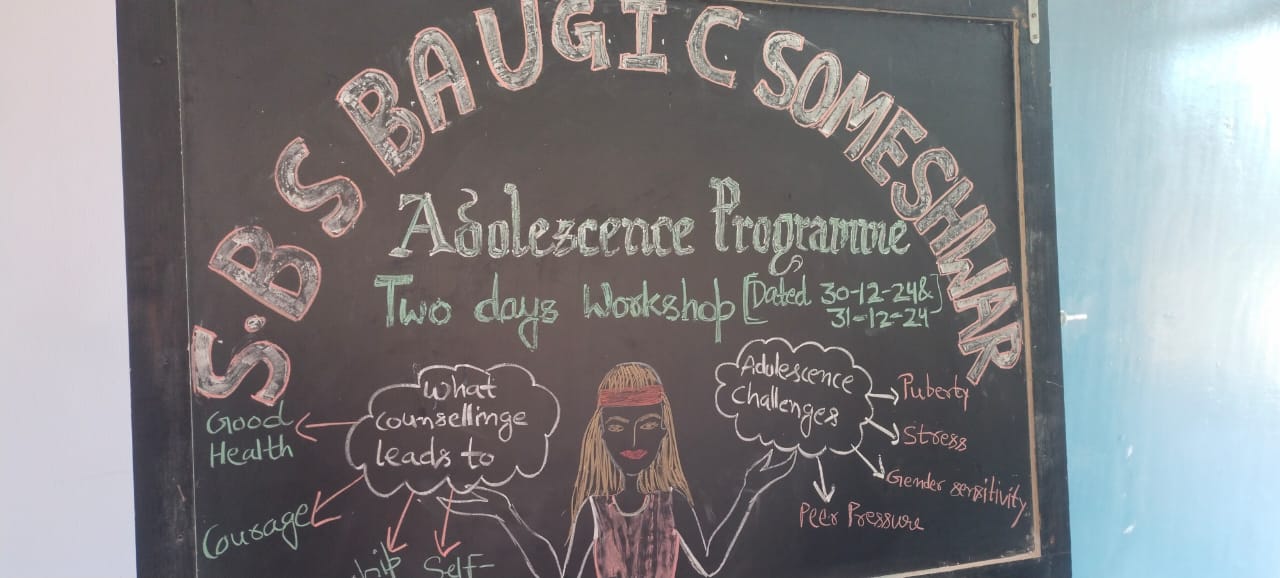 S.B S BAUGIC SOMESHWAR
Adolescence Programme
Two days Workshop [Dated 30-12-24&
31-12-24]
What
counsellinge
leads to
Good
Health
Courage
Self-
Adolescence
Challenges
Puberty
Stress
Gender sensitivity
Peer Pressure